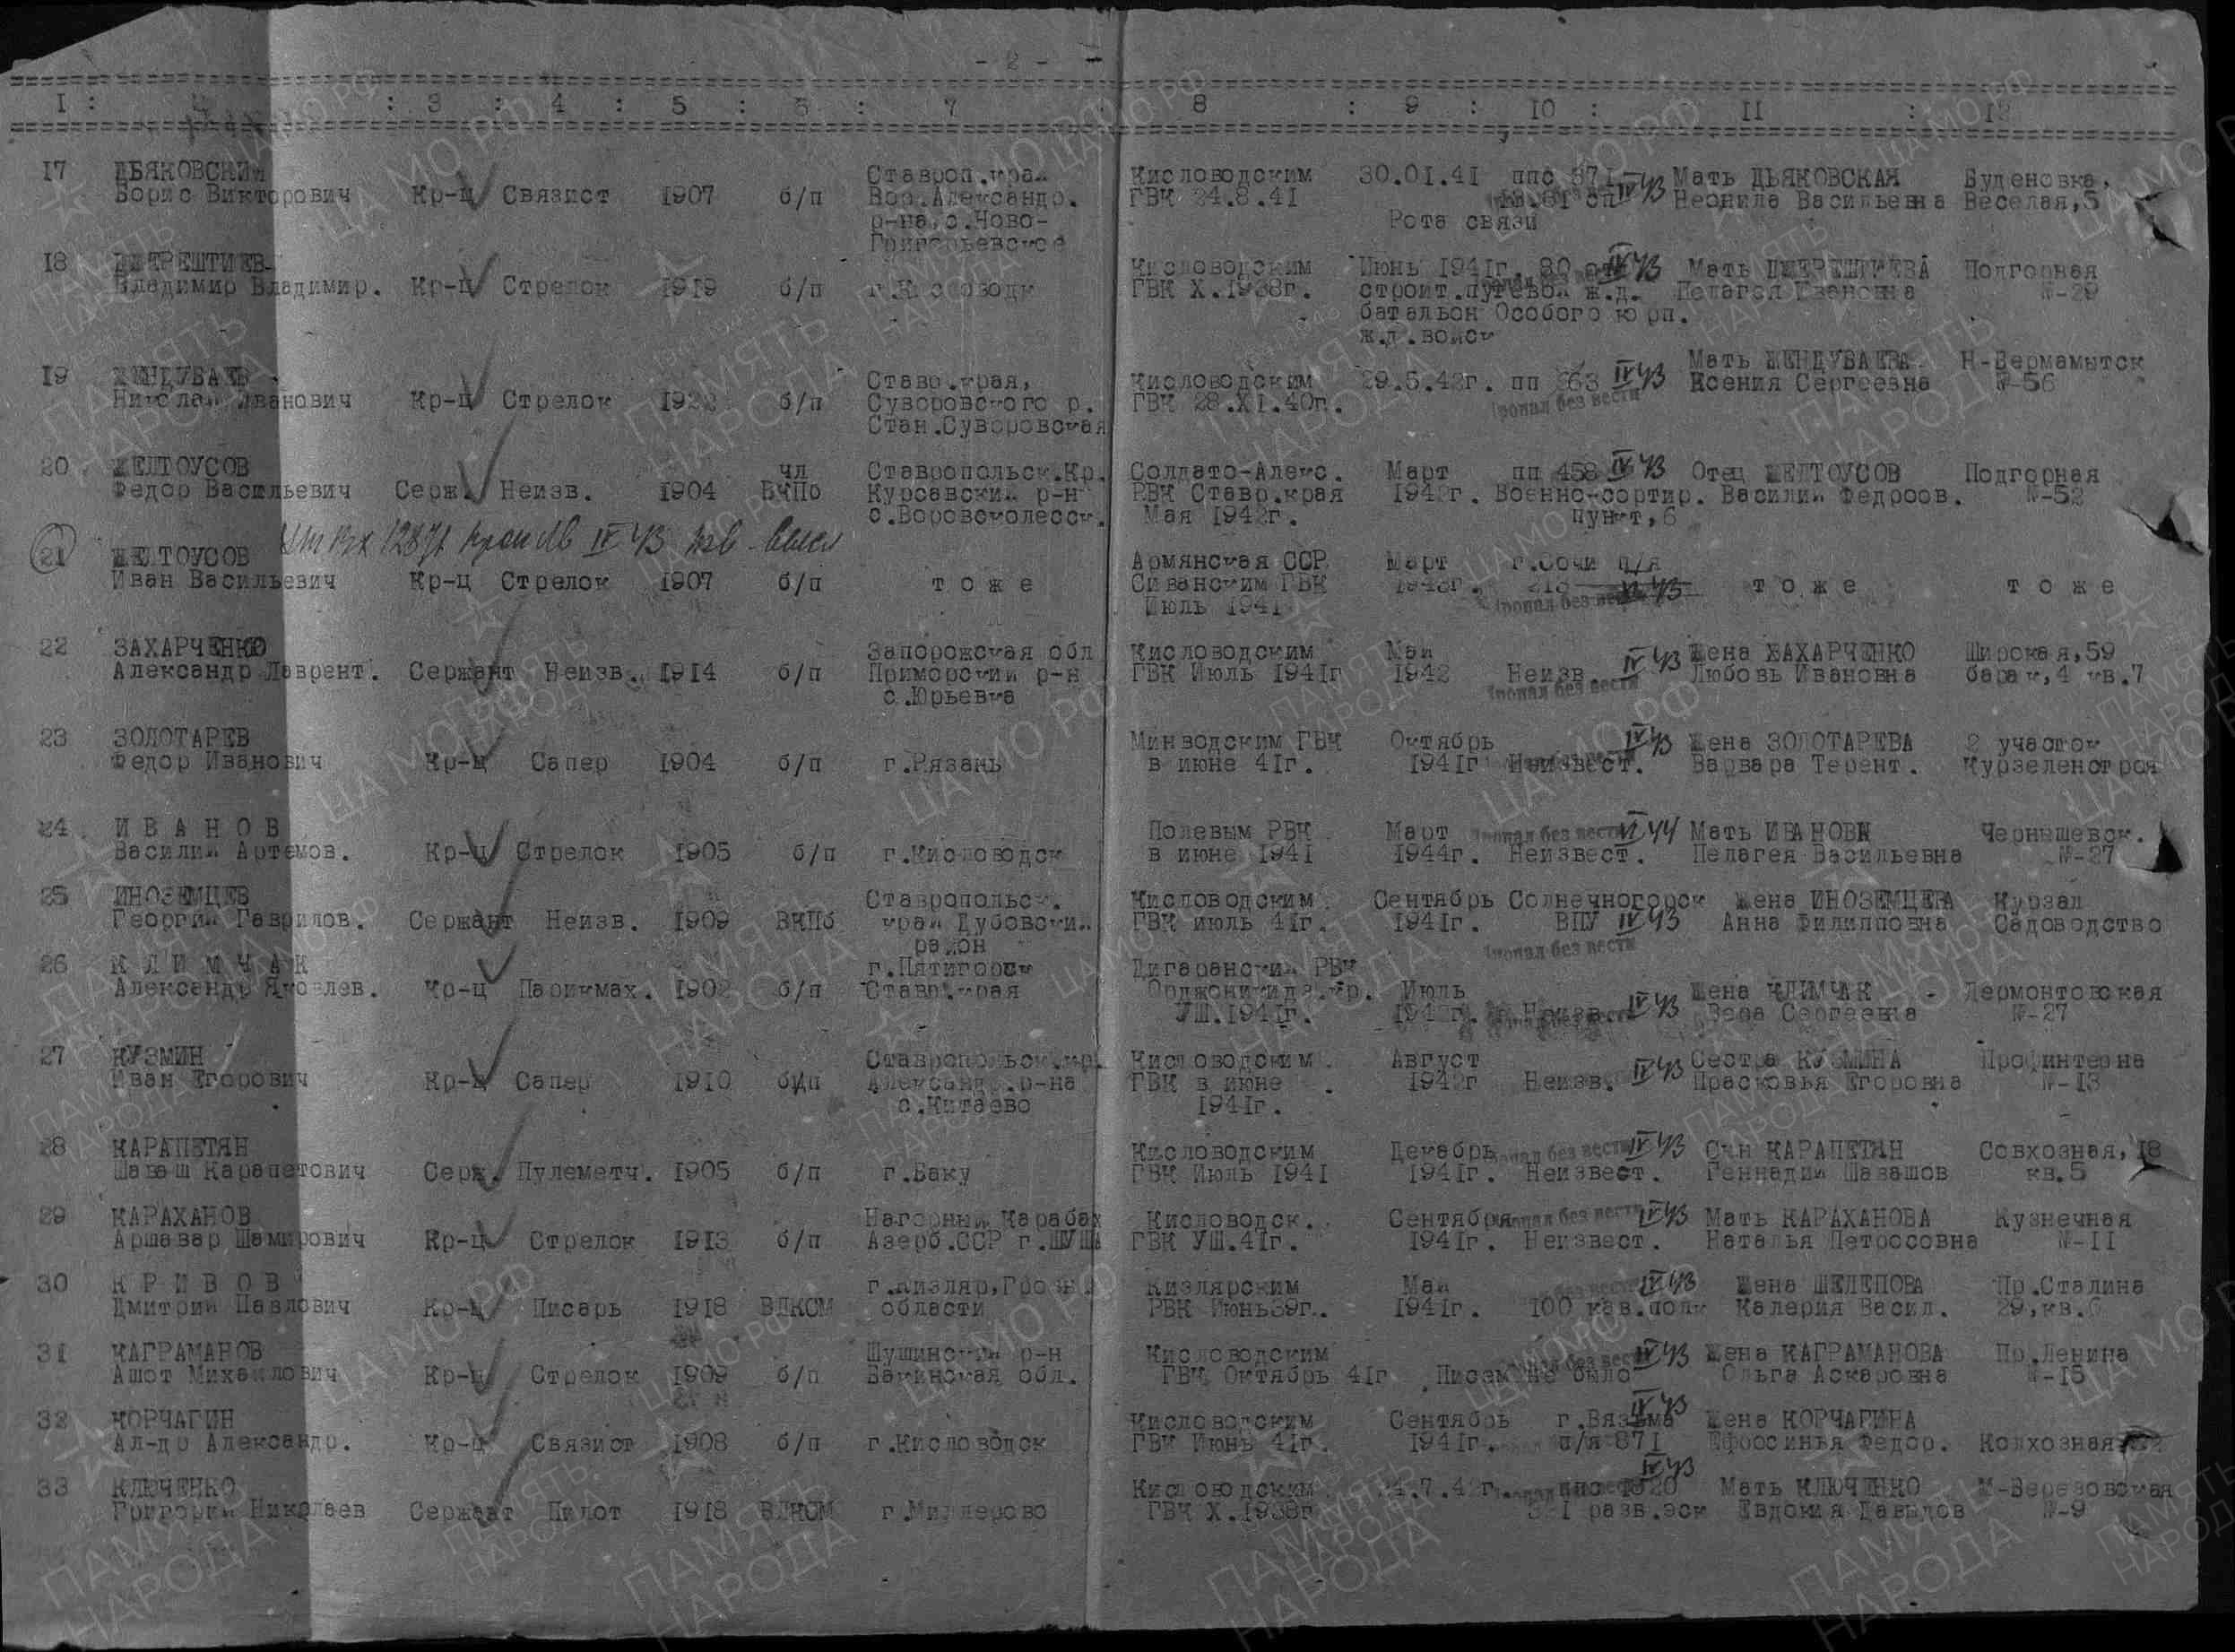 - 2 -
I : : 3 : 4 : 5 : 6 : 7 8 : 9 : 10 : 11 : 12
17 ДЬЯКОВСКИЙ Ставроп.края Кисловодским 30.01.41 ппс 671 IV 43 Мать ДЬЯКОВСКАЯ Буденовка,
Борис Викторович Кр-ц Связист 1907 б/п Вор.Александр. ГВК 24.8.41 Неонила Васильевна Веселая,5
р-на,с.Ново- Рота связи
Григорьевское
18 Кисловодским Июнь 1941г. IV 43 Мать Подгорная
Владимир Владимир. Кр-ц Стрелок 1919 б/п г.Кисловодск ГВК X.1938г. строит.путевой ж.д. Пелагея Ивановна №-29
батальон Особого корп.
ж.д.войск
19 ЖЕНДУБАЕВ Мать ЖЕНДУБАЕВА Н-Бермамытск
Став.края, Кисловодским 29.5.42г. пп 263 IV 43 Ксения Сергеевна №-56
Николай Иванович Кр-ц Стрелок 1922 б/п Суворовского р. ГВК 28.XI.40г. Пропал без вести
Стан.Суворовская
20 ЖЕЛТОУСОВ чл Ставропольск.Кр. Солдато-Алекс. Март пп 458 IV 43 Отец ЖЕЛТОУСОВ Подгорная
Федор Васильевич Серж. Неизв. 1904 ВКПб Курсавский р-н РВК Ставр.края 1942г. Военно-сортир. Василий Федоров. №-52
с.Воровсколесск. Мая 1942г. пункт,6
IV 43
21 ЖЕЛТОУСОВ Армянская ССР Март г.Сочи п/я
Иван Васильевич Кр-ц Стрелок 1907 б/п т о ж е ГВК 213 т о ж е т о ж е
Июль 1941 Пропал без вести
22 ЗАХАРЧЕНКО Запорожская обл Кисловодским Май IV 43 Жена ЗАХАРЧЕНКО Широкая,59
Александр Лаврент. Сержант Неизв. 1914 б/п Приморский р-н ГВК Июль 1941г 1942 Неизв. Любовь Ивановна барак,4 кв.7
с.Юрьевка Пропал без вести
23 ЗОЛОТАРЕВ Минводским ГВК Октябрь IV 43 Жена ЗОЛОТАРЕВА 2 участок
Федор Иванович Кр-ц Сапер 1904 б/п г.Рязань в июне 41г. 1941г Неизвест. Варвара Терент. Курзеленстроя
24 И В А Н О В Полевым РВК Март Пропал без вести VI 44 Мать ИВАНОВА Чернышевск.
Василий Артемов. Кр-ц Стрелок 1905 б/п г.Кисловодск в июне 1941 1944г. Неизвест. Пелагея Васильевна №-27
25 ИНОЗЕМЦЕВ Ставропольск. Кисловодским Сентябрь Солнечногорск Жена ИНОЗЕМЦЕВА Курзал
Георгий Гаврилов. Сержант Неизв. 1909 ВКПб край Дубовский ГВК июль 41г. 1941г. ВПУ IV 43 Анна Филипповна Садоводство
район Пропал без вести
26 К Л И М Ч А К г.Пятигорск Дигаранский РВК
Александр Яковлев. Кр-ц Парикмах. 1902 б/п Ставр.края Орджоникидз.кр. Июль Жена КЛИМЧАК Лермонтовская
УШ.1941г. Неизв. IV 43 Вера Сергеевна №-27
27 КУЗМИН Ставропольск.кр. Кисловодским Август IV 43 Сестра КУЗМИНА Профинтерна
Иван Егорович Кр-ц Сапер 1910 б/п Александр.р-на ГВК в июне 1942г Неизв. Прасковья Егоровна №-13
с.Китаево 1941г.
28 КАРАПЕТЯН Кисловодским Декабрь Пропал без вести IV 43 Сын КАРАПЕТЯН Совхозная,18
Шаваш Карапетович Серж. Пулеметч. 1905 б/п г.Баку ГВК Июль 1941 1941г. Неизвест. Геннадий Шавашов кв.5
29 КАРАХАНОВ Нагорный Карабах Кисловодск. Сентября Пропал без вести IV 43 Мать КАРАХАНОВА Кузнечная
Аршавар Шамирович Кр-ц Стрелок 1913 б/п Азерб.ССР г.ШУША ГВК УШ.41г. 1941г. Неизвест. Наталья Петросовна №-11
30 К Р И В О В г.Кизляр,Грозн. Кизлярским Май IV 43 Жена ШЕЛЕПОВА Пр.Сталина
Дмитрий Павлович Кр-ц Писарь 1918 ВЛКСМ области РВК Июнь39г.. 1941г. 100 кав.полк Калерия Васил. 29,кв.
31 КАГРАМАНОВ Шушинский р-н Кисловодским IV 43 Жена КАГРАМАНОВА Пр.Ленина
Ашот Михайлович Кр-ц Стрелок 1909 б/п Бакинская обл. ГВК Октябрь 41г Писем не было Ольга Аскаровна №-15
32 КОРЧАГИН Кисловодским Сентябрь г.Вязьма IV 43 Жена КОРЧАГИНА
Ал-др Александр. Кр-ц Связист 1908 б/п г.Кисловодск ГВК Июнь 41г. 1941г. п/я 871 Ефросинья Федор. Колхозная
33 КЛЮЧЕНКО Кисловодским 24.7.42г. IV 43 Мать КЛЮЧЕНКО М-Березовская
Григорий Николаев Сержант Пилот 1918 ВЛКСМ г.Миллерово ГВК X.1938г разв.эск Евдокия Давыдов №-9
ПАМЯТЬ НАРОДА
ЦАМО РФ